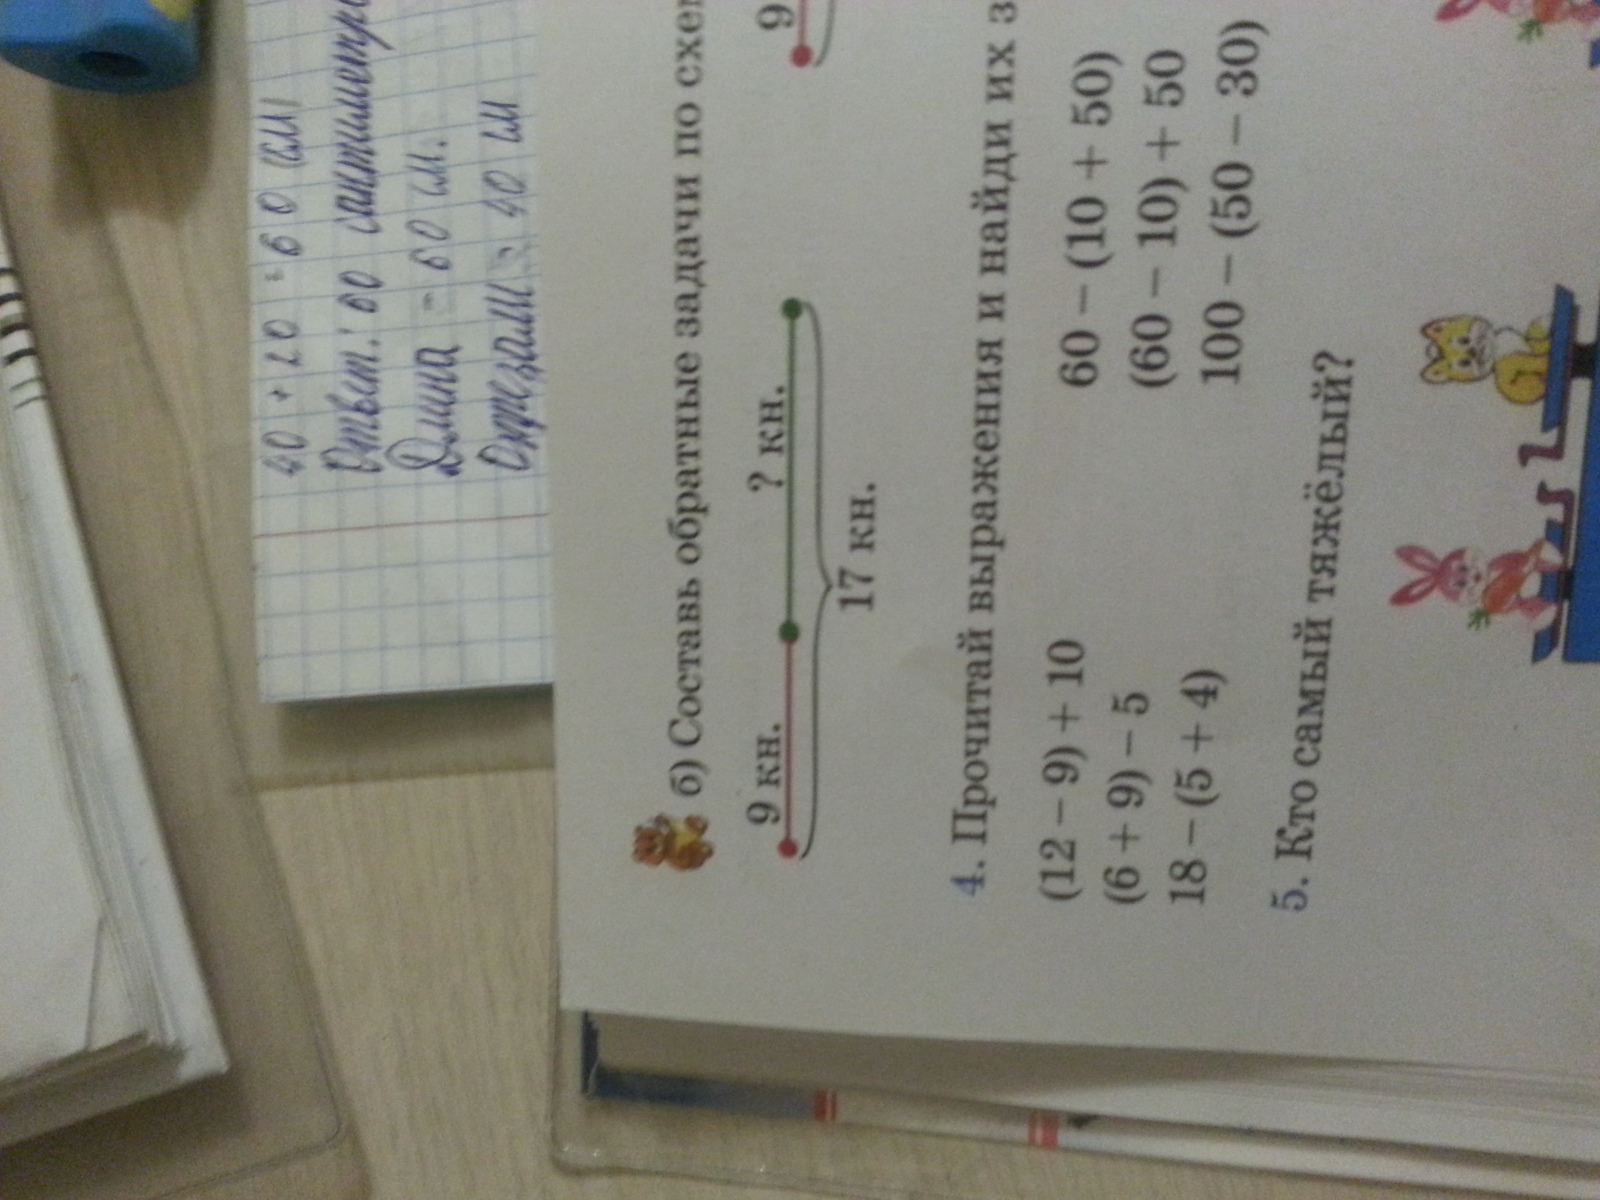 40 + 20 = 60 (см)
Ответ: 60 сантиметро
Длина = 60 см.
Отрезали = 40 см
б) Составь обратные задачи по схем
9 кн. ? кн.
17 кн.
9
4. Прочитай выражения и найди их з
(12 − 9) + 10 60 − (10 + 50)
(6 + 9) − 5 (60 − 10) + 50
18 − (5 + 4) 100 − (50 − 30)
5. Кто самый тяжёлый?